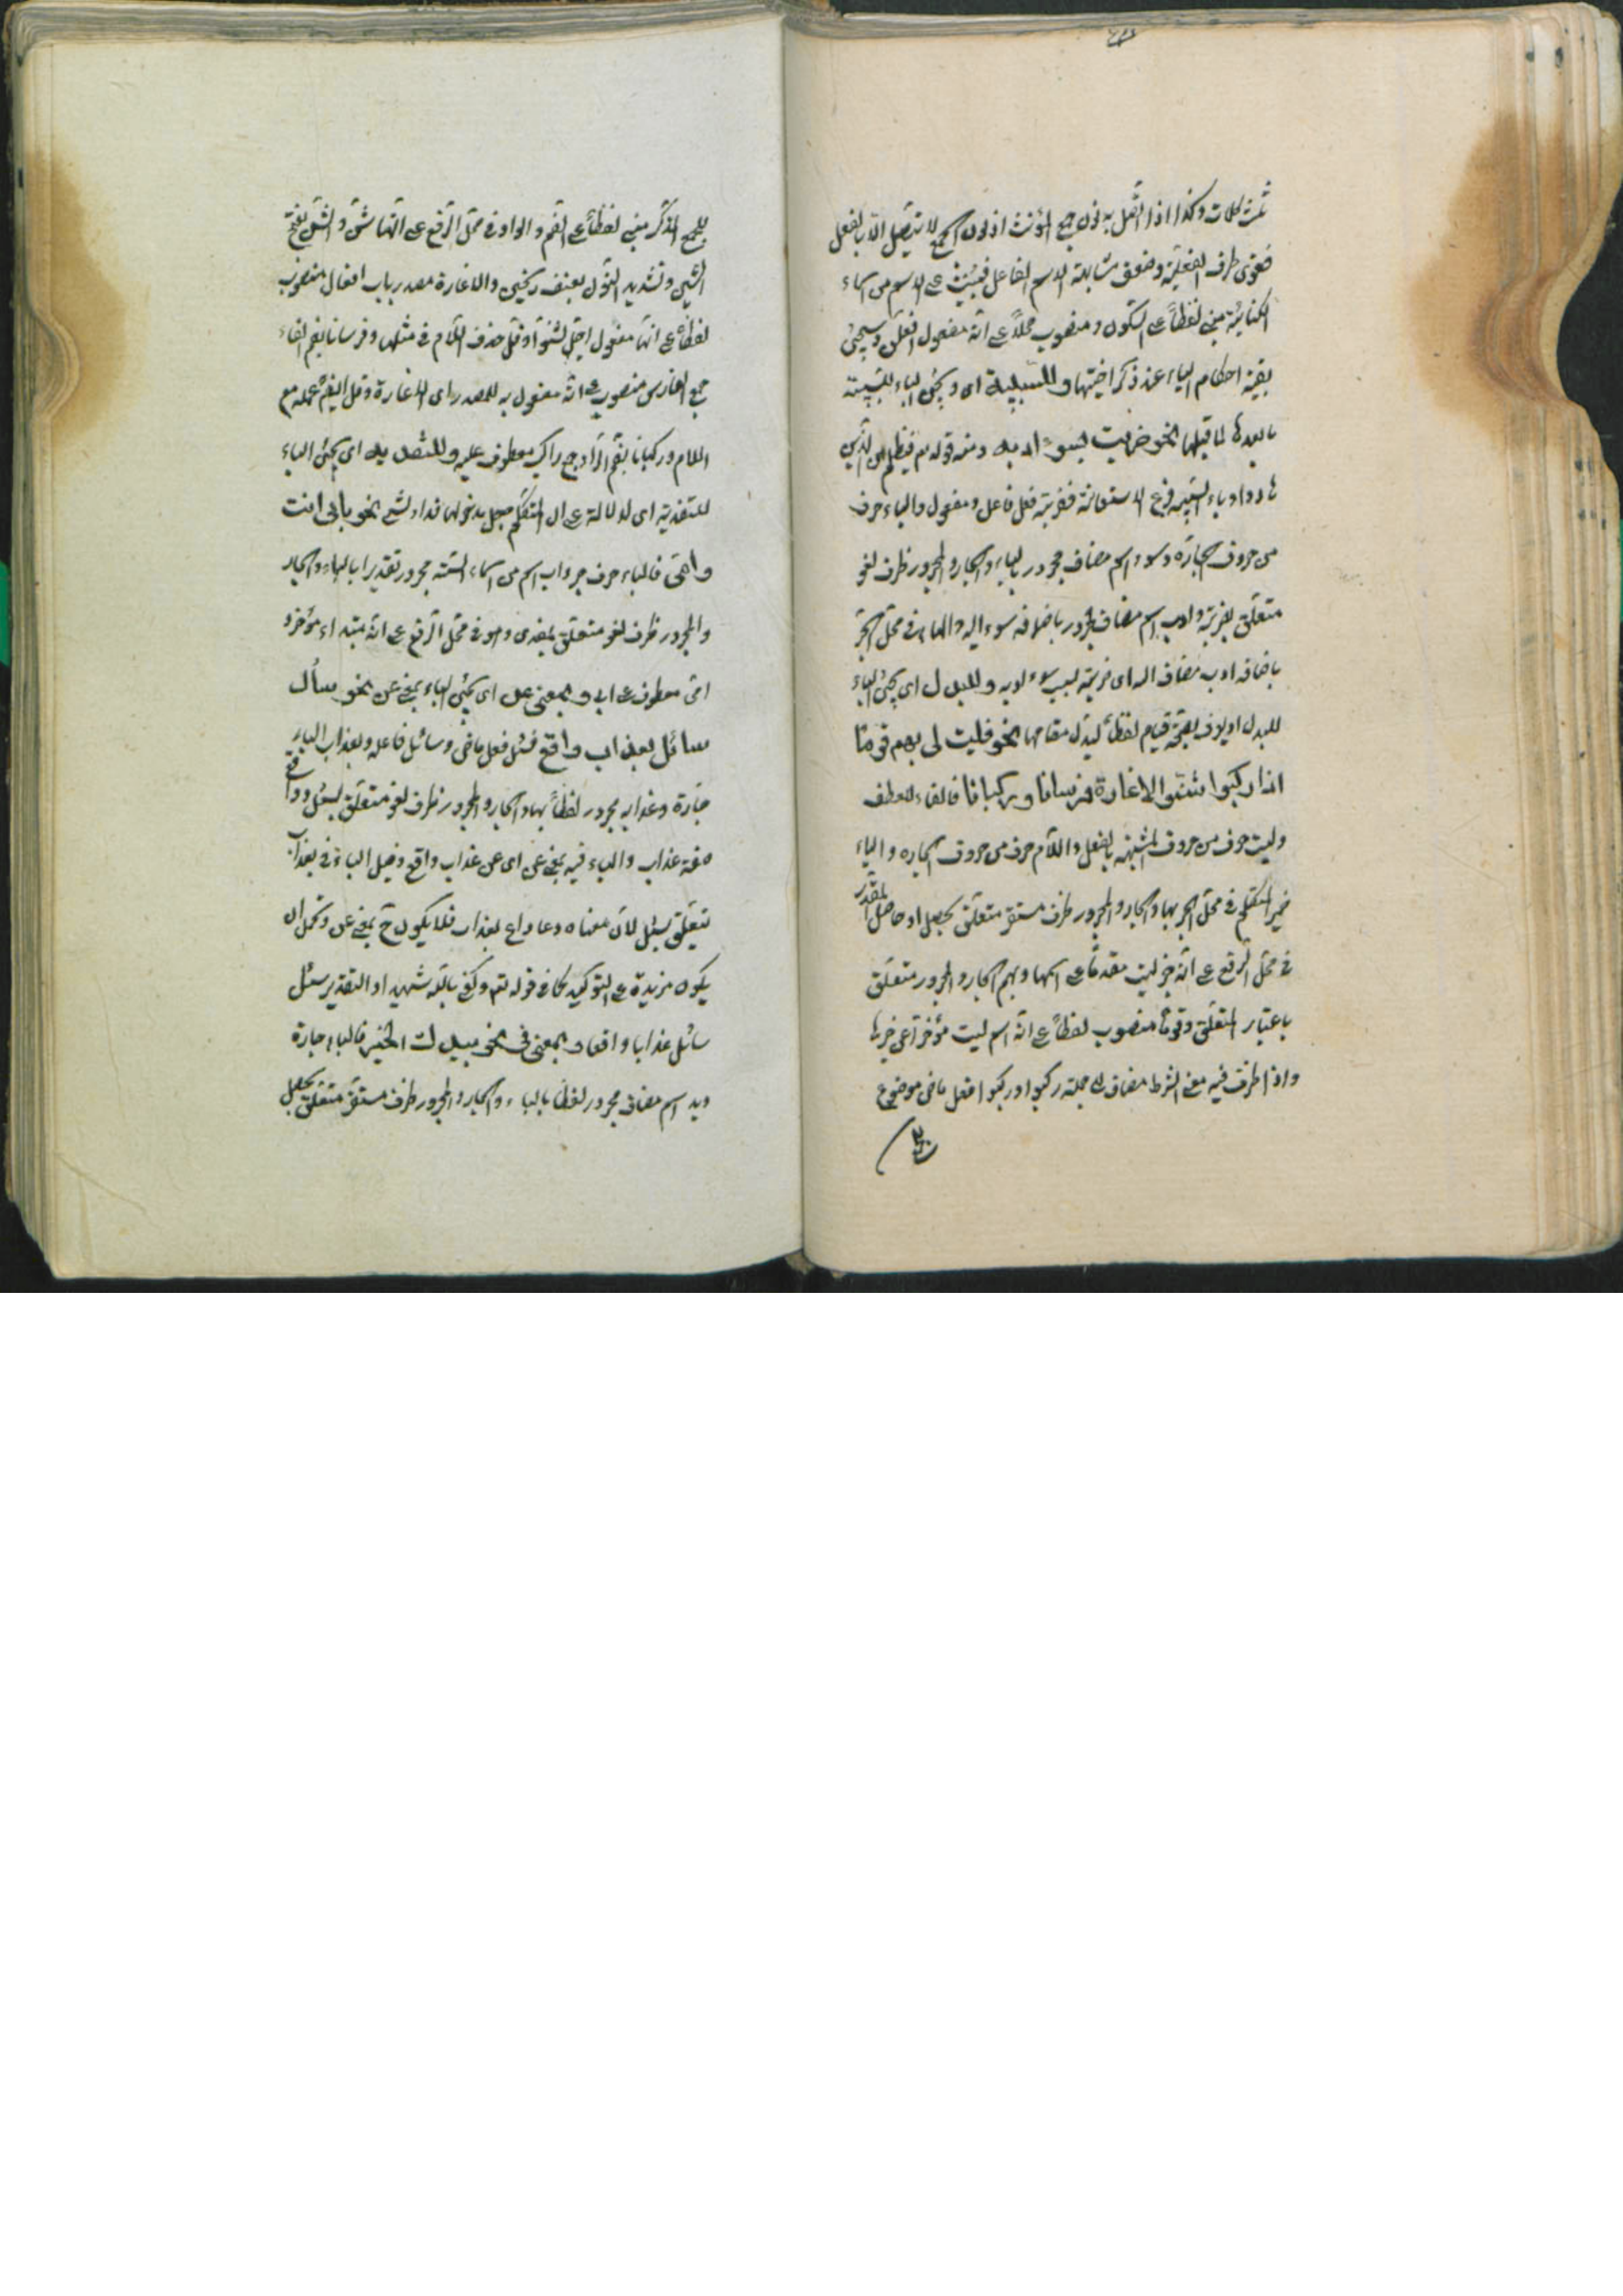 ثلث كلمات وكذا اذا اتصل به نون جمع المؤنث اذ نون الجمع لا يتصل الا بالفعل
فقوى طرف الفعلية وضعف مشابهة الاسم الفاعل فبنيت على الاسم من اسماء
الكناية مبني لفظاً على السكون ومنصوب محلاً على انه مفعول افعلن وسيجئ
بقية احكام الياء عند ذكر اختها وللسببية اى ويجئ الباء لسببية
ما بعدها لما قبلها نحو ضربت لسوء ادبه ومنه قوله تع فبظلم من الذين
هادوا وباء السببية فرع الاستعانة فضربته فعل فاعل ومفعول والباء حرف
من حروف الجارة وسوء اسم مضاف مجرور بالباء والجار والمجرور ظرف لغو
متعلق بضربته وادب اسم مضاف مجرور باضافه سوء اليه والهاء في محل الجر
باضافه ادب مضاف اليه اى ضربته لسبب سوء ادبه وللبدل اى يجئ الباء
للبدل اويعرف بصحة قيام لفظ البدل مقامها نحو فليت لى بهم قوما
اذا ركبوا شنوا الاغارة فرسانا وركبانا فالفاء للعطف
وليت حرف من حروف المشبهه بالفعل واللام حرف من حروف الجاره والياء
ضمير المتكلم في محل الجر بها والجار والمجرور ظرف مستقر متعلق بحصل او حاصل المقدر
في محل الرفع على انه خبر ليت مقدماً على اسمها وبهم الجار والمجرور متعلق
باعتبار المتعلق وقوماً منصوب لفظاً على انه اسم ليت مؤخراً عن خبرها
واذا ظرف فيه معنى الشرط مضاف الى جملة ركبوا وركبوا فعل ماضى موضوع
للجمع المذكر مبنى لفظاً على الضم والواو في محل الرفع على انها شنوا والشن بفتح
الشين وتشديد النون بمعنف ريختن والاغارة مصدر باب افعال منصوب
لفظاً على انها مفعول لاجل لشنوا وقل حذف اللام في مثلها وفرسانا بضم الفاء
جمع الفارس منصوب على انه مفعول به للمصدر اى الاغارة وقل ايضم عمله مع
اللام وركبانا بضم الراء جمع راكب معطوف عليه وللتفدية اى يجئ الباء
للتفدية اى لدلالة على ان المتكلم جعل مدخولها فداء لشئ نحو بابى انت
وامى فالباء حرف جر واب اسم من اسماء الستة مجرور تقديرا بالباء والجار
والمجرور ظرف لغو متعلق بمفدى وهو في محل الرفع على انه مبتداء مؤخر و
امى معطوف على ابى وبمعنى عن اى يجئ الباء بمعنى عن نحو سأل
سائل بعذاب واقع فسئل فعل ماضى وسائل فاعله وبعذاب الباء
جارة وعذاب مجرور لفظاً بها والجار والمجرور ظرف لغو متعلق بسئل وواقع
صفة عذاب والباء فيه بمعنى عن اى عن عذاب واقع وقيل الباء في بعذاب
يتعلق بسئل لان معناه دعا داع بعذاب فلا يكون ح بمعنى عن ويحتمل ان
يكون مزيدة على التوكيد كما في قوله تع وكفى بالله شهيدا والتقدير سئل
سائل عذابا واقعا وبمعنى فى نحو بيدك الخير فالباء جارة
ويد اسم مضاف مجرور لفظا بالباء والجار والمجرور ظرف مستقر متعلق بحصل